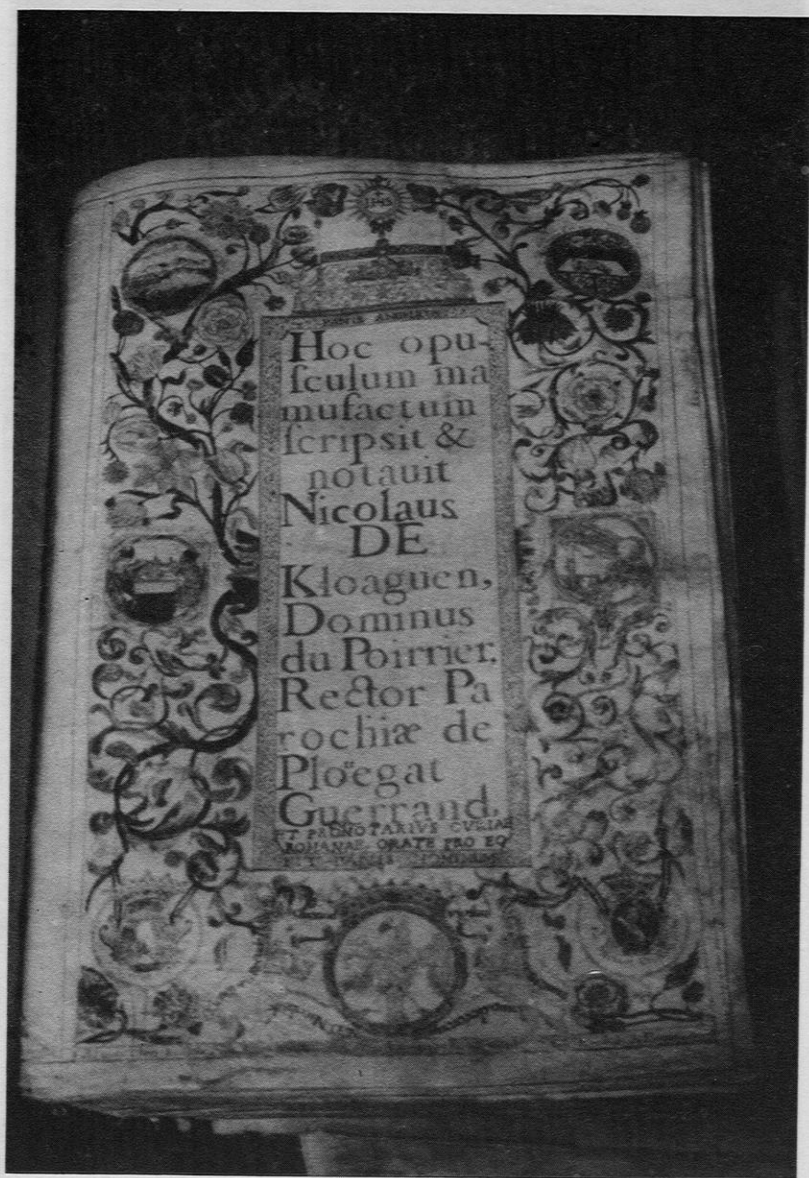 IHS
Hoc opu-
ſculum ma
mufactum
ſcripsit &
notavit
Nicolaus
DE
Kloaguen,
Dominus
du Poirrier,
Rector Pa
rochiæ de
Ploëgat
Guerrand,
ET PRONOTARIVS CVRIAE
ROMANAE, ORATE PRO EO